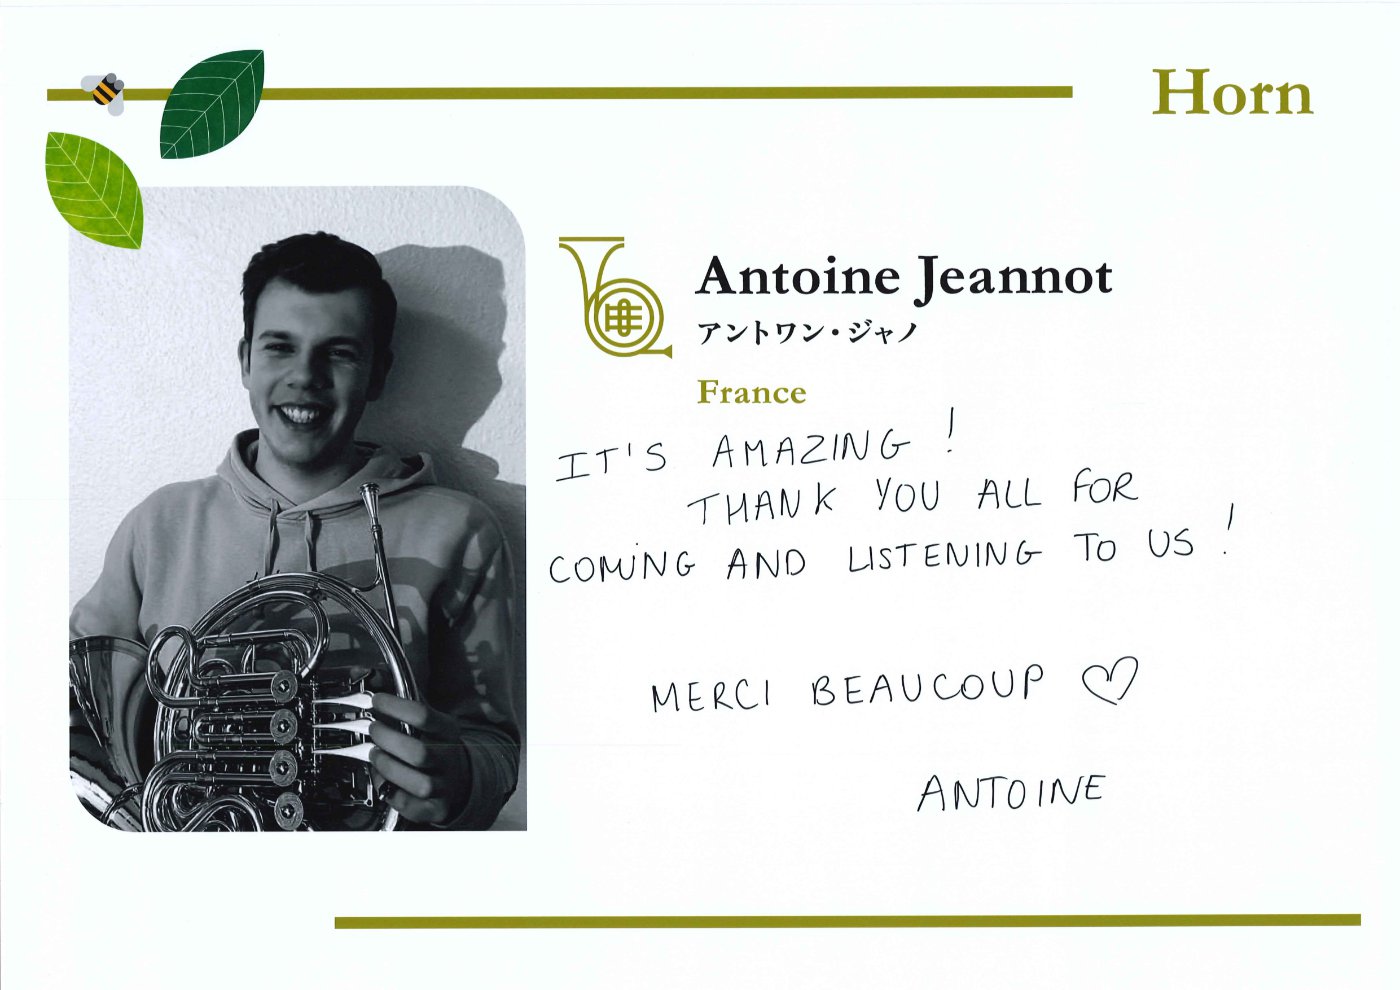 Horn
Antoine Jeannot
アントワン・ジャノ
France
IT'S AMAZING !
THANK YOU ALL FOR
COMING AND LISTENING TO US !
MERCI BEAUCOUP ♡
ANTOINE